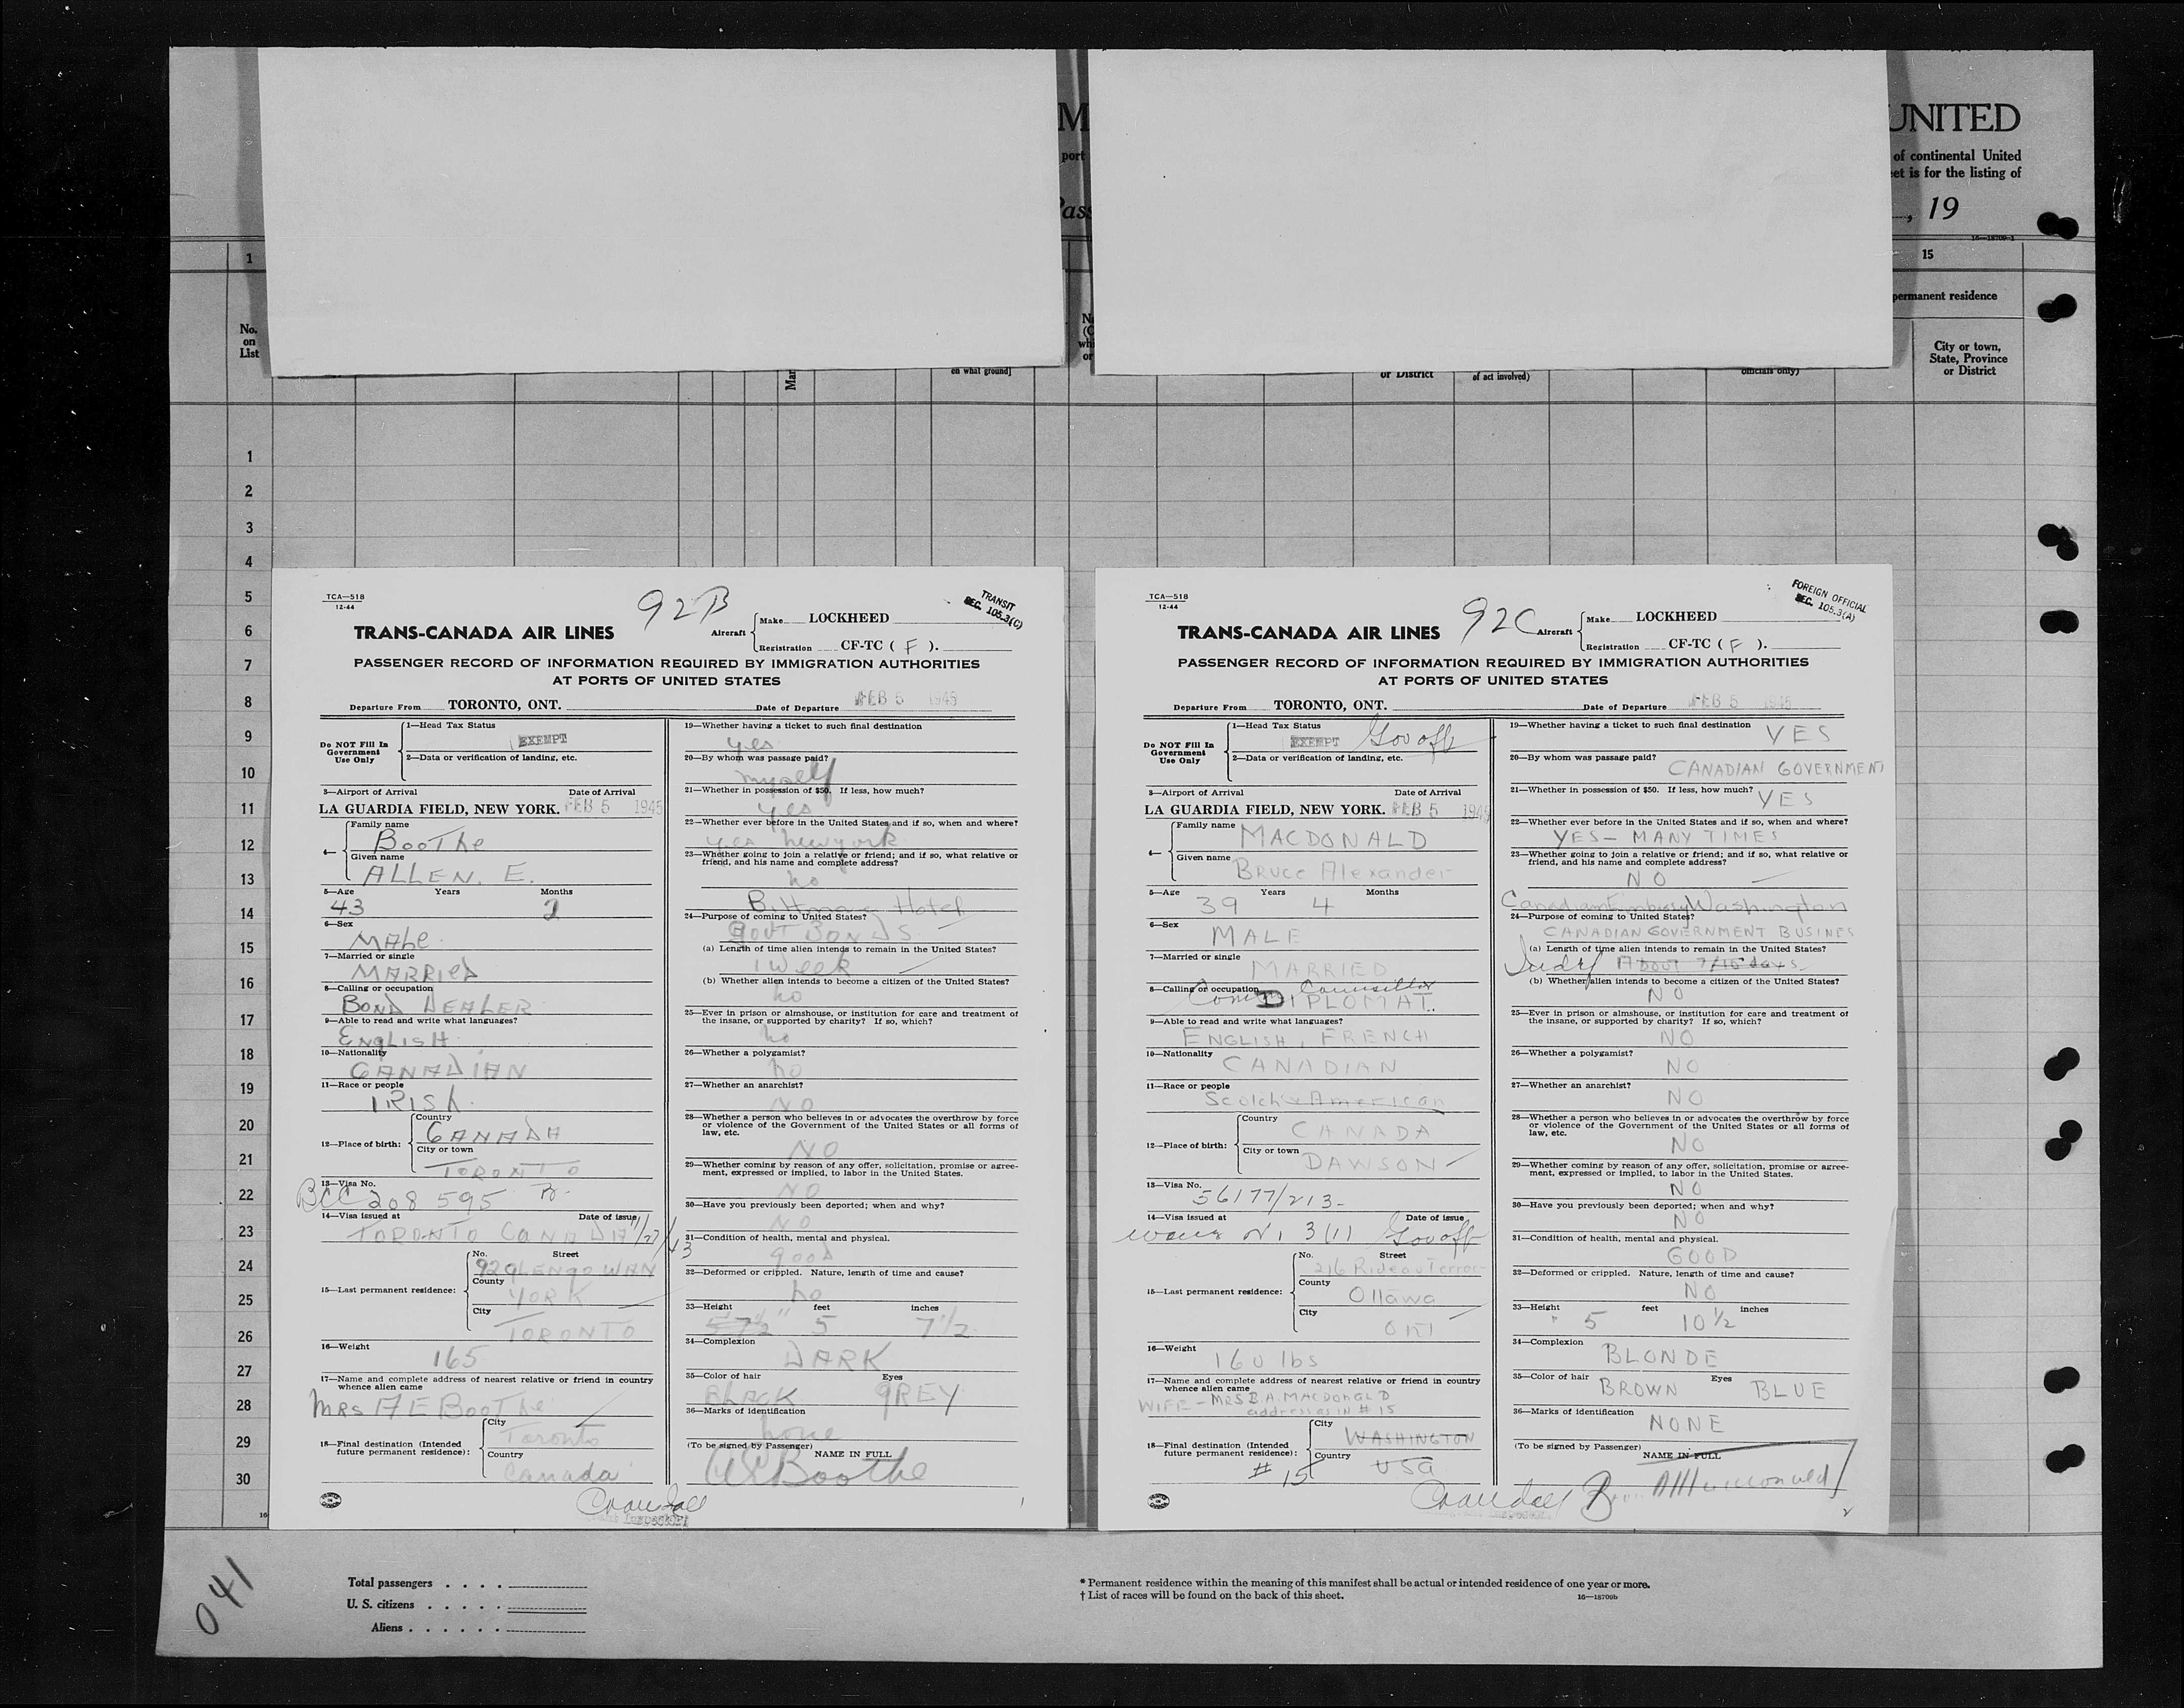 UNITED
M
port
of continental United
et is for the listing of
Pass
, 19
16—18709-1
1
15
permanent residence
No.
on
List
City or town,
State, Province
or District
Mar
en what ground]
or District
of act involved)
officials only)
1
2
3
4
5
6
7
8
9
10
11
12
13
14
15
16
17
18
19
20
21
22
23
24
25
26
27
28
29
30
TCA—518
12-44
92B
TRANSIT
SEC. 105.3(C)
TRANS-CANADA AIR LINES
Aircraft
Make LOCKHEED
Registration CF-TC ( F ).
PASSENGER RECORD OF INFORMATION REQUIRED BY IMMIGRATION AUTHORITIES
AT PORTS OF UNITED STATES
Departure From TORONTO, ONT. Date of Departure FEB 5 1945
Do NOT Fill In
Government
Use Only
1—Head Tax Status
EXEMPT
2—Data or verification of landing, etc.
3—Airport of Arrival Date of Arrival
LA GUARDIA FIELD, NEW YORK. FEB 5 1945
4—
Family name
Boothe
Given name
ALLEN. E.
5—Age Years Months
43 2
6—Sex
MALe
7—Married or single
MARRIED
8—Calling or occupation
BOND DEALER
9—Able to read and write what languages?
ENgLISH
10—Nationality
CANADIAN
11—Race or people
IRISh
12—Place of birth:
Country
CANADA
City or town
TORONTO
13—Visa No.
BCC 208 595
14—Visa issued at Date of issue
TORONTO CANADA 11/27/43
15—Last permanent residence:
No. Street
92 GLENGOWAN
County
YORK
City
TORONTO
16—Weight
165
17—Name and complete address of nearest relative or friend in country
whence alien came
MRS A E Boothe
18—Final destination (Intended
future permanent residence):
City
Toronto
Country
Canada
19—Whether having a ticket to such final destination
yes
20—By whom was passage paid?
myself
21—Whether in possession of $50. If less, how much?
yes
22—Whether ever before in the United States and if so, when and where?
yes new york
23—Whether going to join a relative or friend; and if so, what relative or
friend, and his name and complete address?
no
Biltmore Hotel
24—Purpose of coming to United States?
GOVT BONDS
(a) Length of time alien intends to remain in the United States?
1 week
(b) Whether alien intends to become a citizen of the United States?
no
25—Ever in prison or almshouse, or institution for care and treatment of
the insane, or supported by charity? If so, which?
no
26—Whether a polygamist?
no
27—Whether an anarchist?
NO
28—Whether a person who believes in or advocates the overthrow by force
or violence of the Government of the United States or all forms of
law, etc.
NO
29—Whether coming by reason of any offer, solicitation, promise or agree-
ment, expressed or implied, to labor in the United States.
NO
30—Have you previously been deported; when and why?
NO
31—Condition of health, mental and physical.
good
32—Deformed or crippled. Nature, length of time and cause?
no
33—Height feet inches
5' 7½" 5 7½
34—Complexion
DARK
35—Color of hair Eyes
BLACK gREY
36—Marks of identification
none
(To be signed by Passenger) NAME IN FULL
AE Boothe
Crandall
Inspector
1
TCA—518
12-44
92C
FOREIGN OFFICIAL
SEC. 105.3(A)
TRANS-CANADA AIR LINES
Aircraft
Make LOCKHEED
Registration CF-TC ( F ).
PASSENGER RECORD OF INFORMATION REQUIRED BY IMMIGRATION AUTHORITIES
AT PORTS OF UNITED STATES
Departure From TORONTO, ONT. Date of Departure FEB 5 1945
Do NOT Fill In
Government
Use Only
1—Head Tax Status
EXEMPT Gov off
2—Data or verification of landing, etc.
3—Airport of Arrival Date of Arrival
LA GUARDIA FIELD, NEW YORK. FEB 5 1945
4—
Family name
MACDONALD
Given name
Bruce Alexander
5—Age Years Months
39 4
6—Sex
MALE
7—Married or single
MARRIED
8—Calling or occupation
Com Counsillor
DIPLOMAT
9—Able to read and write what languages?
ENGLISH, FRENCH
10—Nationality
CANADIAN
11—Race or people
Scotch & American
12—Place of birth:
Country
CANADA
City or town
DAWSON
13—Visa No.
56177/213-
14—Visa issued at Date of issue
3(1) Gov off
15—Last permanent residence:
No. Street
216 Rideau Terrace
County
Ottawa
City
ONT
16—Weight
160 lbs
17—Name and complete address of nearest relative or friend in country
whence alien came
WIFE — MRS B.A. MACDONALD
address as in # 15
18—Final destination (Intended
future permanent residence):
# 15
City
WASHINGTON
Country
USA
19—Whether having a ticket to such final destination
YES
20—By whom was passage paid?
CANADIAN GOVERNMENT
21—Whether in possession of $50. If less, how much?
YES
22—Whether ever before in the United States and if so, when and where?
YES — MANY TIMES
23—Whether going to join a relative or friend; and if so, what relative or
friend, and his name and complete address?
NO
Canadian Embassy Washington
24—Purpose of coming to United States?
CANADIAN GOVERNMENT BUSINES
(a) Length of time alien intends to remain in the United States?
Indef About 7/10 days
(b) Whether alien intends to become a citizen of the United States?
NO
25—Ever in prison or almshouse, or institution for care and treatment of
the insane, or supported by charity? If so, which?
NO
26—Whether a polygamist?
NO
27—Whether an anarchist?
NO
28—Whether a person who believes in or advocates the overthrow by force
or violence of the Government of the United States or all forms of
law, etc.
NO
29—Whether coming by reason of any offer, solicitation, promise or agree-
ment, expressed or implied, to labor in the United States.
NO
30—Have you previously been deported; when and why?
NO
31—Condition of health, mental and physical.
GOOD
32—Deformed or crippled. Nature, length of time and cause?
NO
33—Height feet inches
5 10½
34—Complexion
BLONDE
35—Color of hair Eyes
BROWN BLUE
36—Marks of identification
NONE
(To be signed by Passenger) NAME IN FULL
Crandall
2
041
Total passengers . . . .
U. S. citizens . . . . .
Aliens . . . . . .
* Permanent residence within the meaning of this manifest shall be actual or intended residence of one year or more.
† List of races will be found on the back of this sheet.
16—18709b